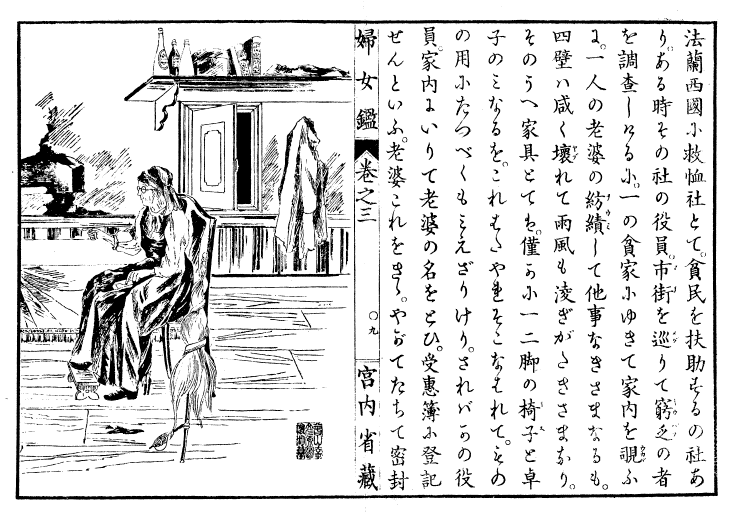 法蘭西國に救恤社とて。貧民を扶助するの社あ
り。ある時その社の役員。市街を巡りて窮乏の者
を調査しけるに。一の貧家にゆきて家内を覗ふ
に。一人の老婆の紡績して他事なきさまなるも。
四壁ハ咸く壊れて雨風も凌ぎがたきさまなり。
そのうへ家具とてハ。僅かに一二脚の椅子と卓
子のミなるを。これまたやれそこなはれて。その
の用にたつべくもミえざりけり。されバかの役
員。家内にいりて老婆の名をとひ。受惠簿に登記
せんといふ。老婆これをきゝ。やがてたちて密封
婦女鑑 卷之三 〇九 宮内省藏